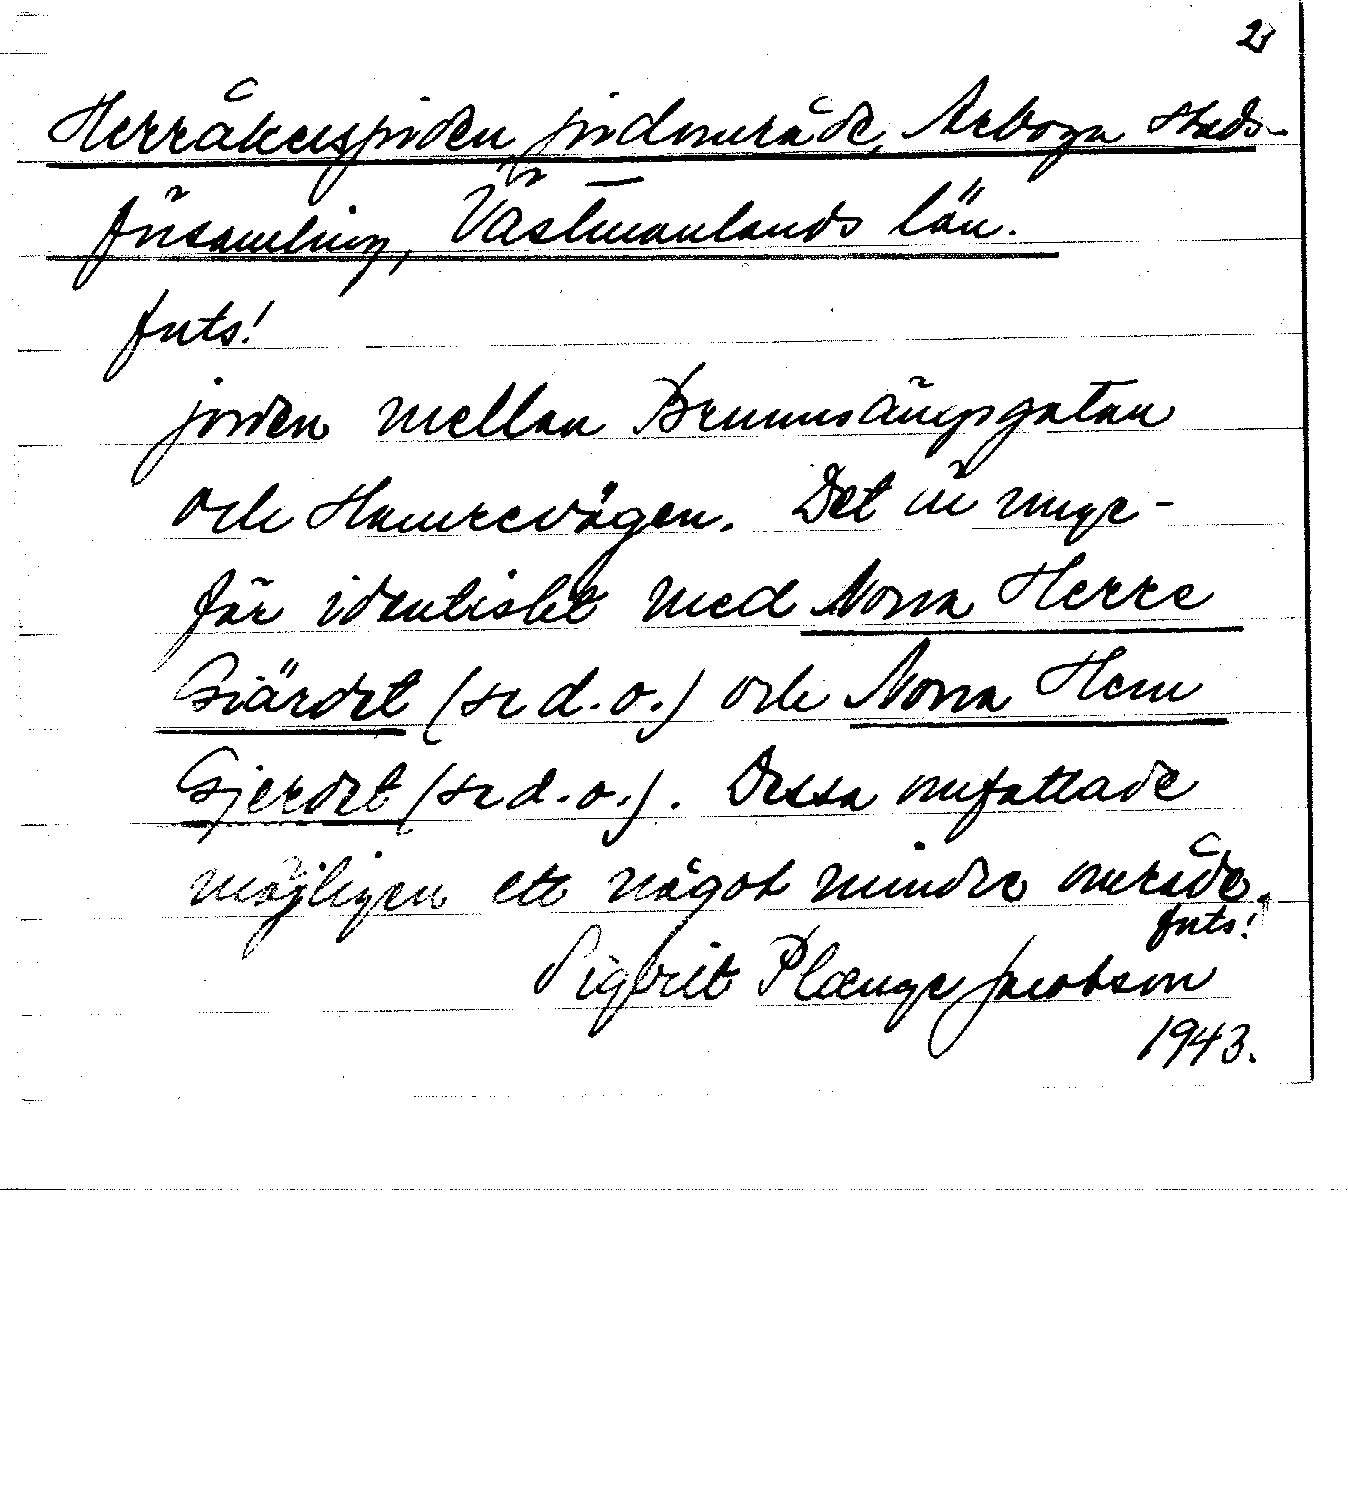 2
Herråkersjorden, jordområde, Arboga stads-
församling, Västmanlands län.
forts!
jorden mellan Brunnsängsgatan
och Hamrevägen. Det är unge-
fär identiskt med Norra Herre
Giärdet (se d.o.) och Norra Hem
Gjerdet (se d.o.). Dessa omfattade
möjligen ett något mindre område.
forts!
Sigbrit Plænge Jacobson
1943.